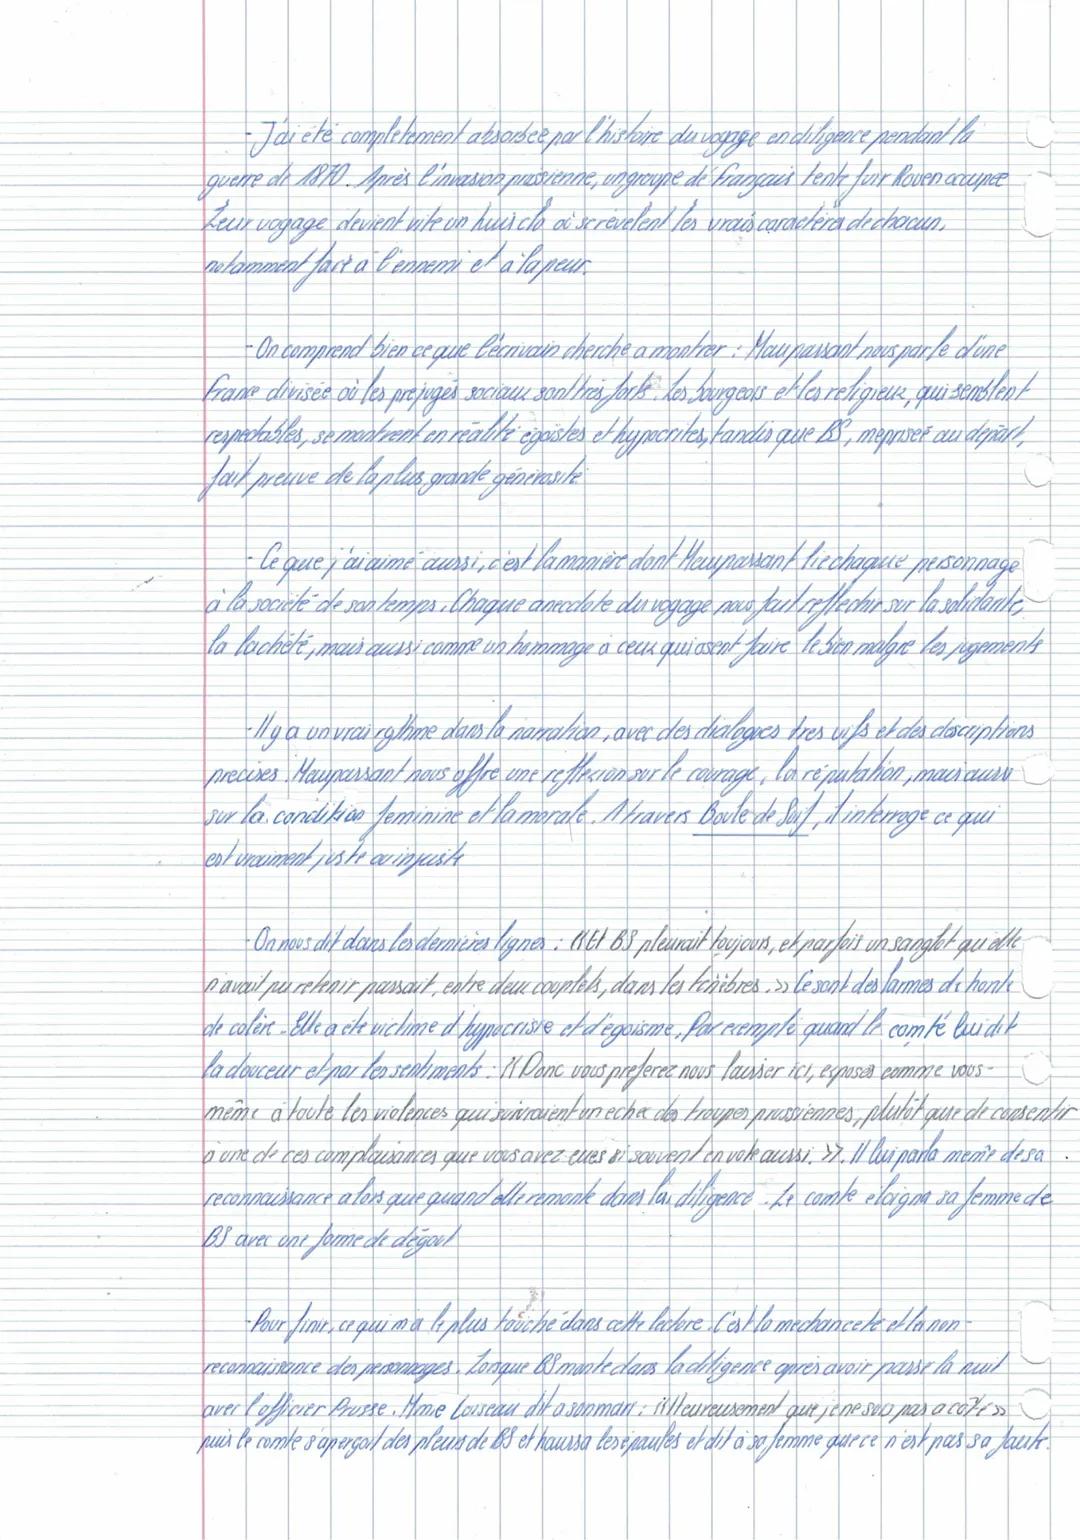 - J'ai été complètement absorbée par l'histoire du voyage en diligence pendant la
guerre de 1870. Après l'invasion prussienne, un groupe de Français tente fuir Rouen occupée
Leur voyage devient vite un huis clo où se révèlent les vrais caractères de chacun,
notamment face à l'ennemi et à la peur.
- On comprend bien ce que l'écrivain cherche a montrer : Maupassant nous parle d'une
France divisée où les préjugés sociaux sont très forts. Les bourgeois et les religieux, qui semblent
respectables, se montrent en réalité égoïstes et hypocrites, tandis que BS, méprisée au départ,
fait preuve de la plus grande générosité.
- Ce que j'ai aimé aussi, c'est la manière dont Maupassant lie chaque personnage
à la société de son temps. Chaque anecdote du voyage nous fait reflechir sur la solidarité,
la lachété, mais aussi comme un hommage à ceux qui osent faire le bien malgré les jugements
- Il y a un vrai rythme dans la narration, avec des dialogues tres vifs et des descriptions
precises. Maupassant nous offre une reflexion sur le courage, la réputation, mais aussi
sur la condition feminine et la morale. A travers Boule de Suif, il interroge ce qui
est vraiment juste ou injuste
- On nous dit dans les dernières lignes : << Et BS pleurait toujours, et parfois un sanglot qu'elle
n'avait pu retenir passait, entre deux couplets, dans les ténèbres. >> Ce sont des larmes de honte
de colère. Elle a été victime d'hypocrisie et d'égoisme. Par exemple quand le comte lui dit
la douceur et par les sentiments : << Donc vous preferez nous laisser ici, exposés comme vous-
même à toute les violences qui suivraient un echec des troupes prussiennes, plutôt que de consentir
à une de ces complaisances que vous avez eues si souvent en votre aussi. >>. Il lui parla même de sa
reconnaissance alors que quand elle remonte dans la diligence. Le comte éloigna sa femme de
BS avec une forme de dégout
- Pour finir, ce qui m'a le plus touché dans cette lecture. C'est la mechanceté et la non-
reconnaissance des personnages. Lorsque BS monte dans la diligence après avoir passé la nuit
avec l'officier Prusse. Mme Loiseau dit a son mari : << Heureusement que je ne suis pas a côté >>
puis le comte s'aperçoit des pleurs de BS et haussa les épaules et dit à sa femme que ce n'est pas sa faute.